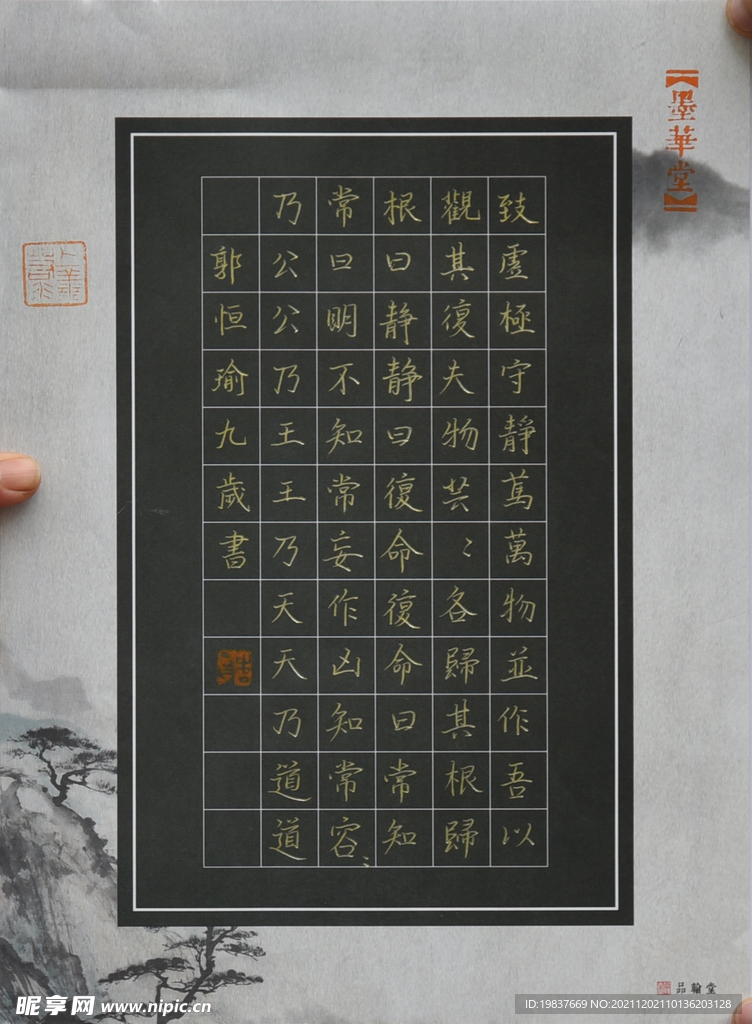 【墨華堂】
致虛極守靜篤萬物並作吾以
觀其復夫物芸〻各歸其根歸
根曰静静曰復命復命曰常知
常曰明不知常妄作凶知常容〻
乃公公乃王王乃天天乃道道
郭恒瑜九歲書
品翰堂
昵享网 www.nipic.cn
ID:19837669 NO:20211202110136203128